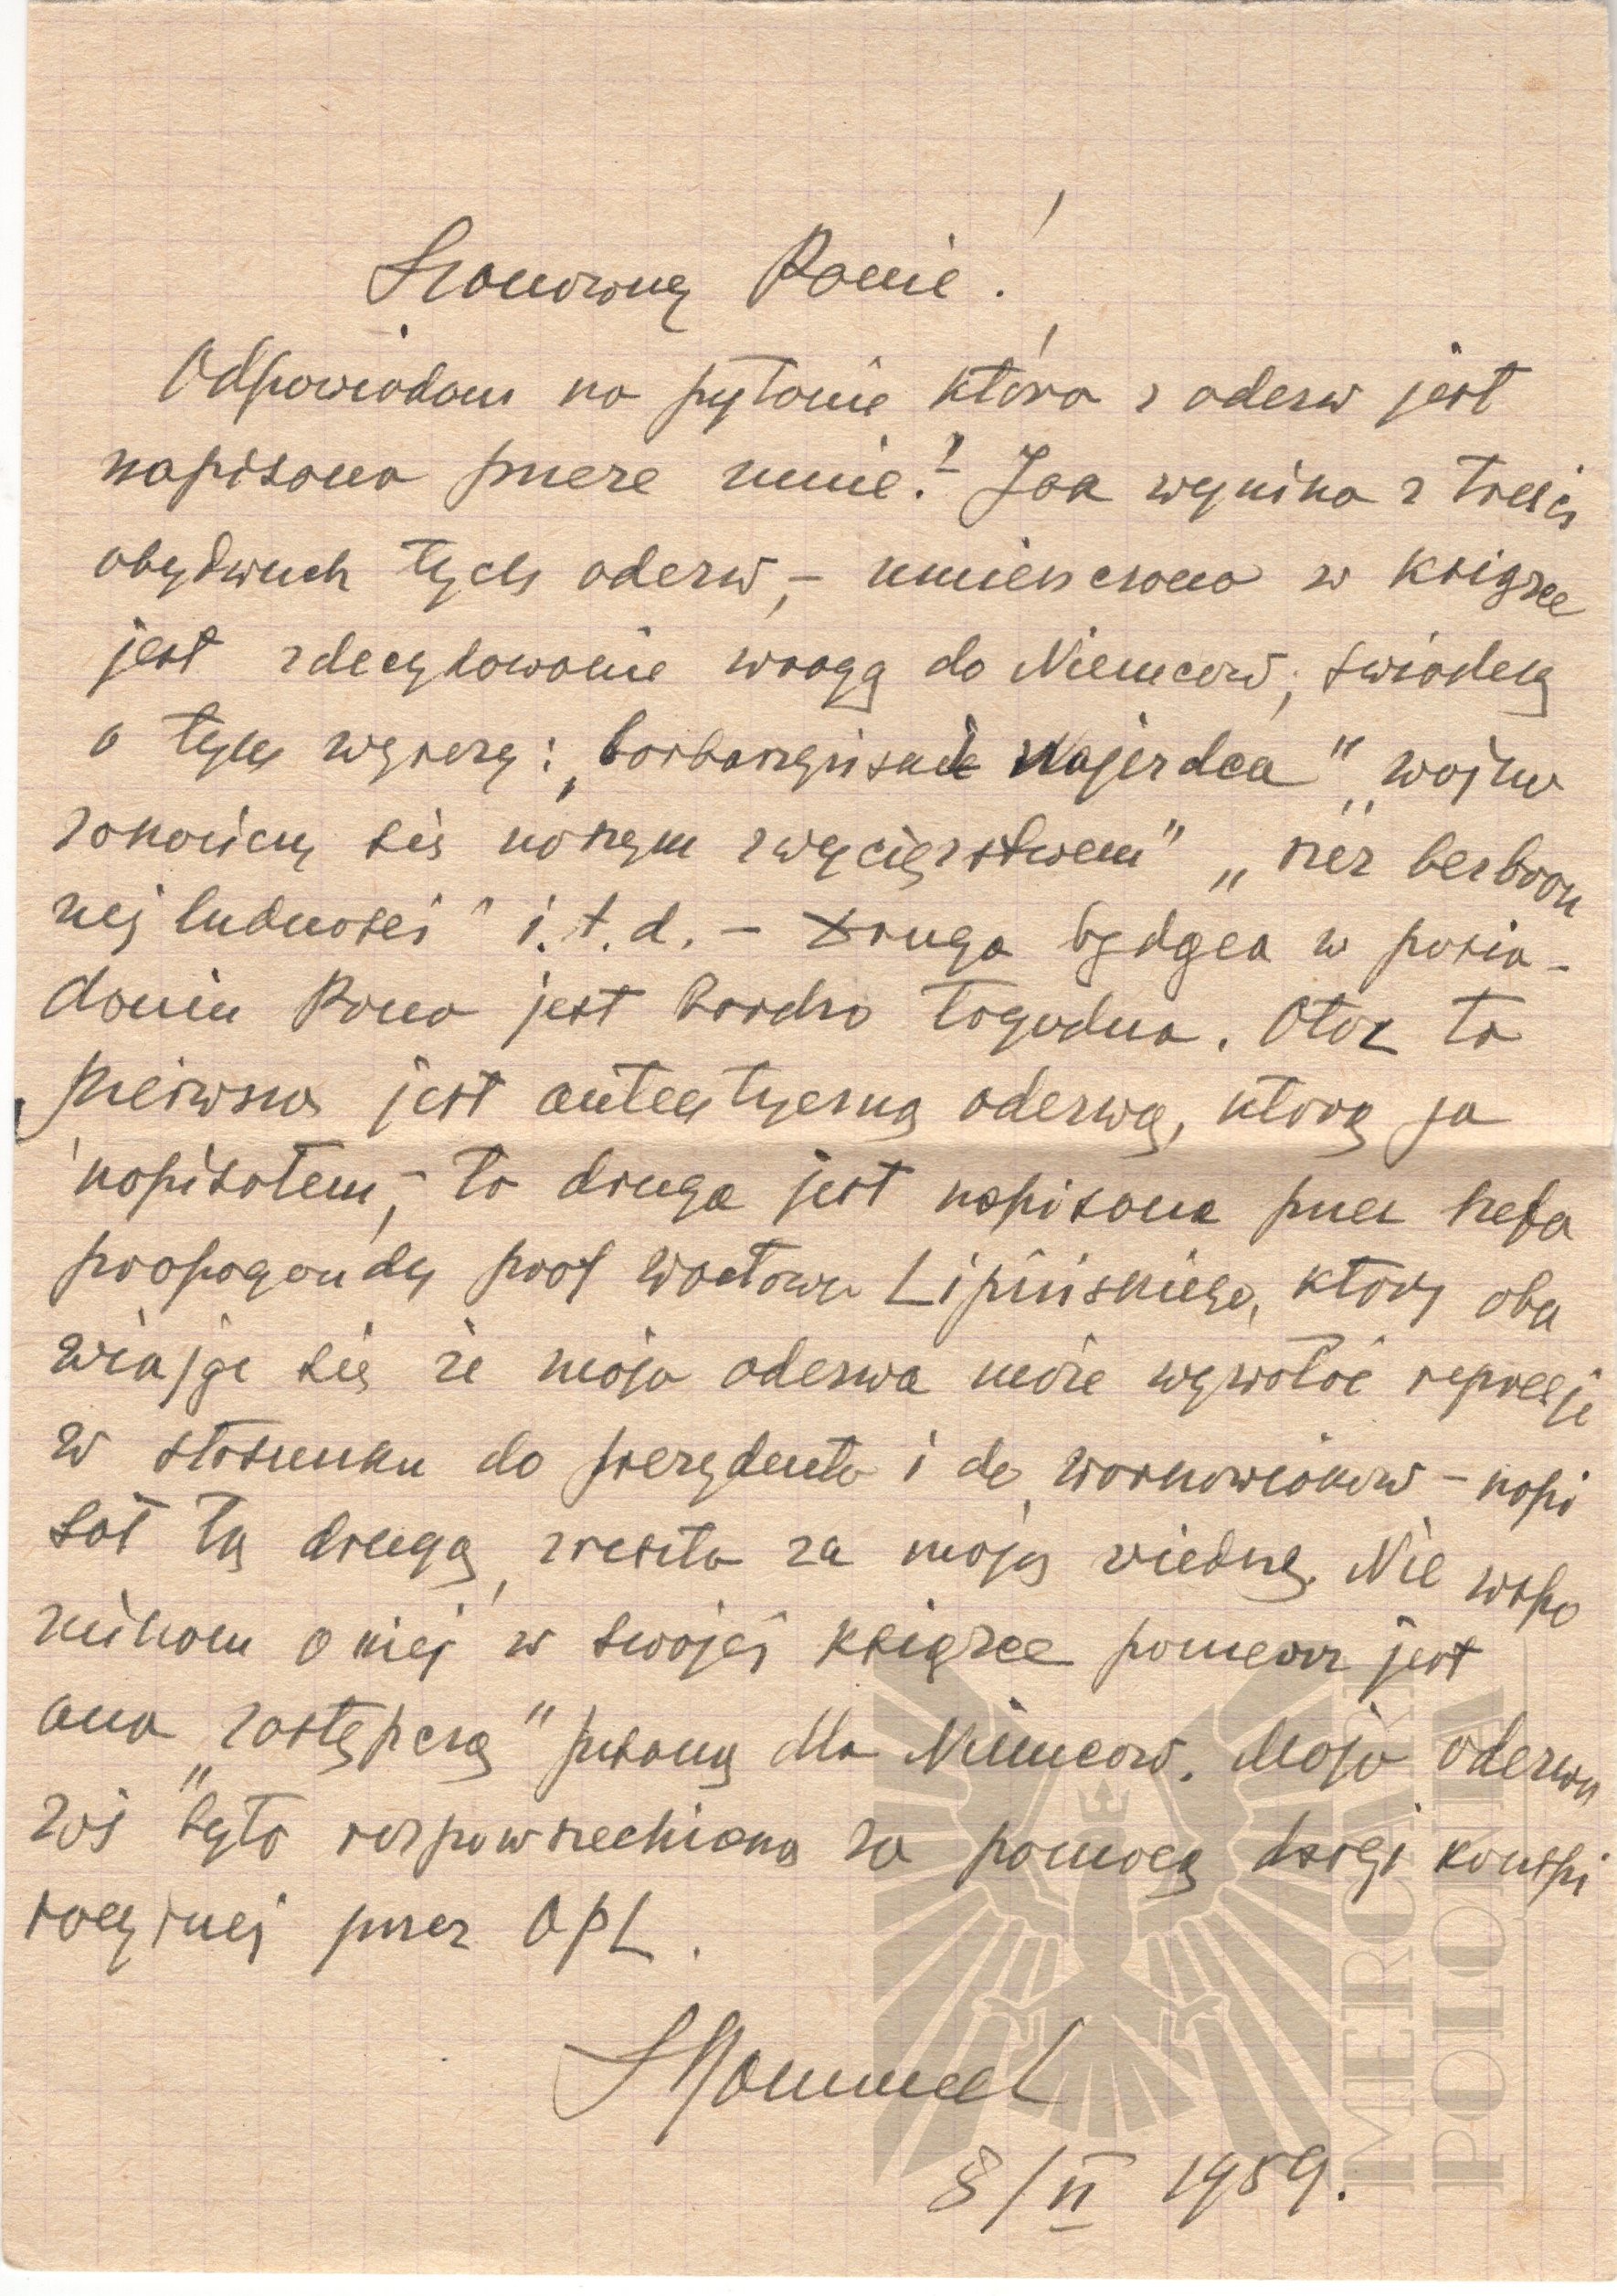 Szanowny Panie!
Odpowiadam na pytanie która z odezw jest
napisana przeze mnie? Jak wynika z treści
obydwuch tych odezw, – umieszczona w książce
jest zdecydowanie wroga do Niemców; świadczą
o tym wyrazy: „barbarzyński najeźdca" „wojna
zakończy się naszym zwycięzstwem" „rzeź bezbron
nej ludności" i.t.d. – Druga będąca w posia-
daniu Pana jest bardzo łagodna. Otoż ta
pierwsza jest autentyczną odezwą, którą ja
napisałem, – ta druga jest napisana przez szefa
propagandy prof Wacława Lipińskiego, który oba
wiając się że moja odezwa może wywołać represje
w stosunku do prezydenta i do warszawiaków – napi
sał tą drugą, zresztą za moją wiedzą. Nie wspo
minam o niej w swojej książce ponieważ jest
ona „zastępczą" pisaną dla Niemców. Moja odezwa
zaś była rozpowszechniona za pomocą drogi konspi
racyjnej przez OPL.
J Rómmel
8/II 1959.
MERCATOR
POLONIA